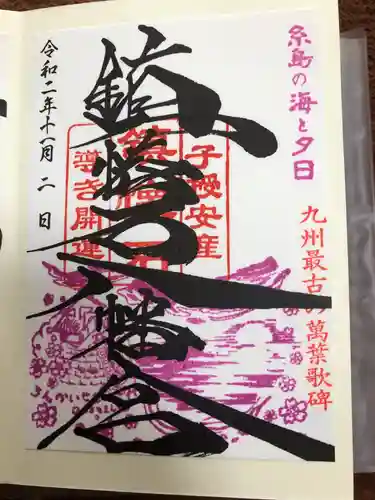 糸島の海と夕日
九州最古の萬葉歌碑
子授安産
鎮懐石
導き開運
鎮懐石八幡宮
令和二年十一月二日